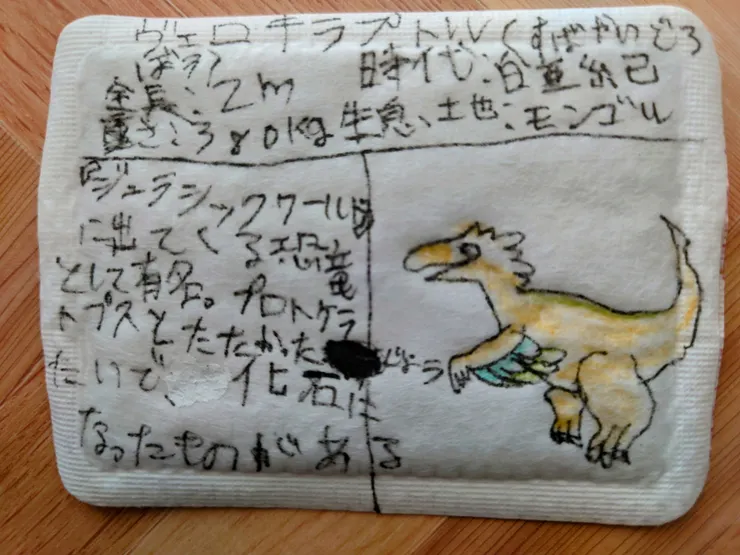 ヴェロキラプトル(すばやいどろ
ぼう)
時代:白亜紀
全長:2m
重さ:380kg 生息、土地:モンゴル
『ジュラシックワールド』
に出てくる恐竜
として有名。プロトケラ
トプスとたたかった じょう
たいで、化石に
なったものがある